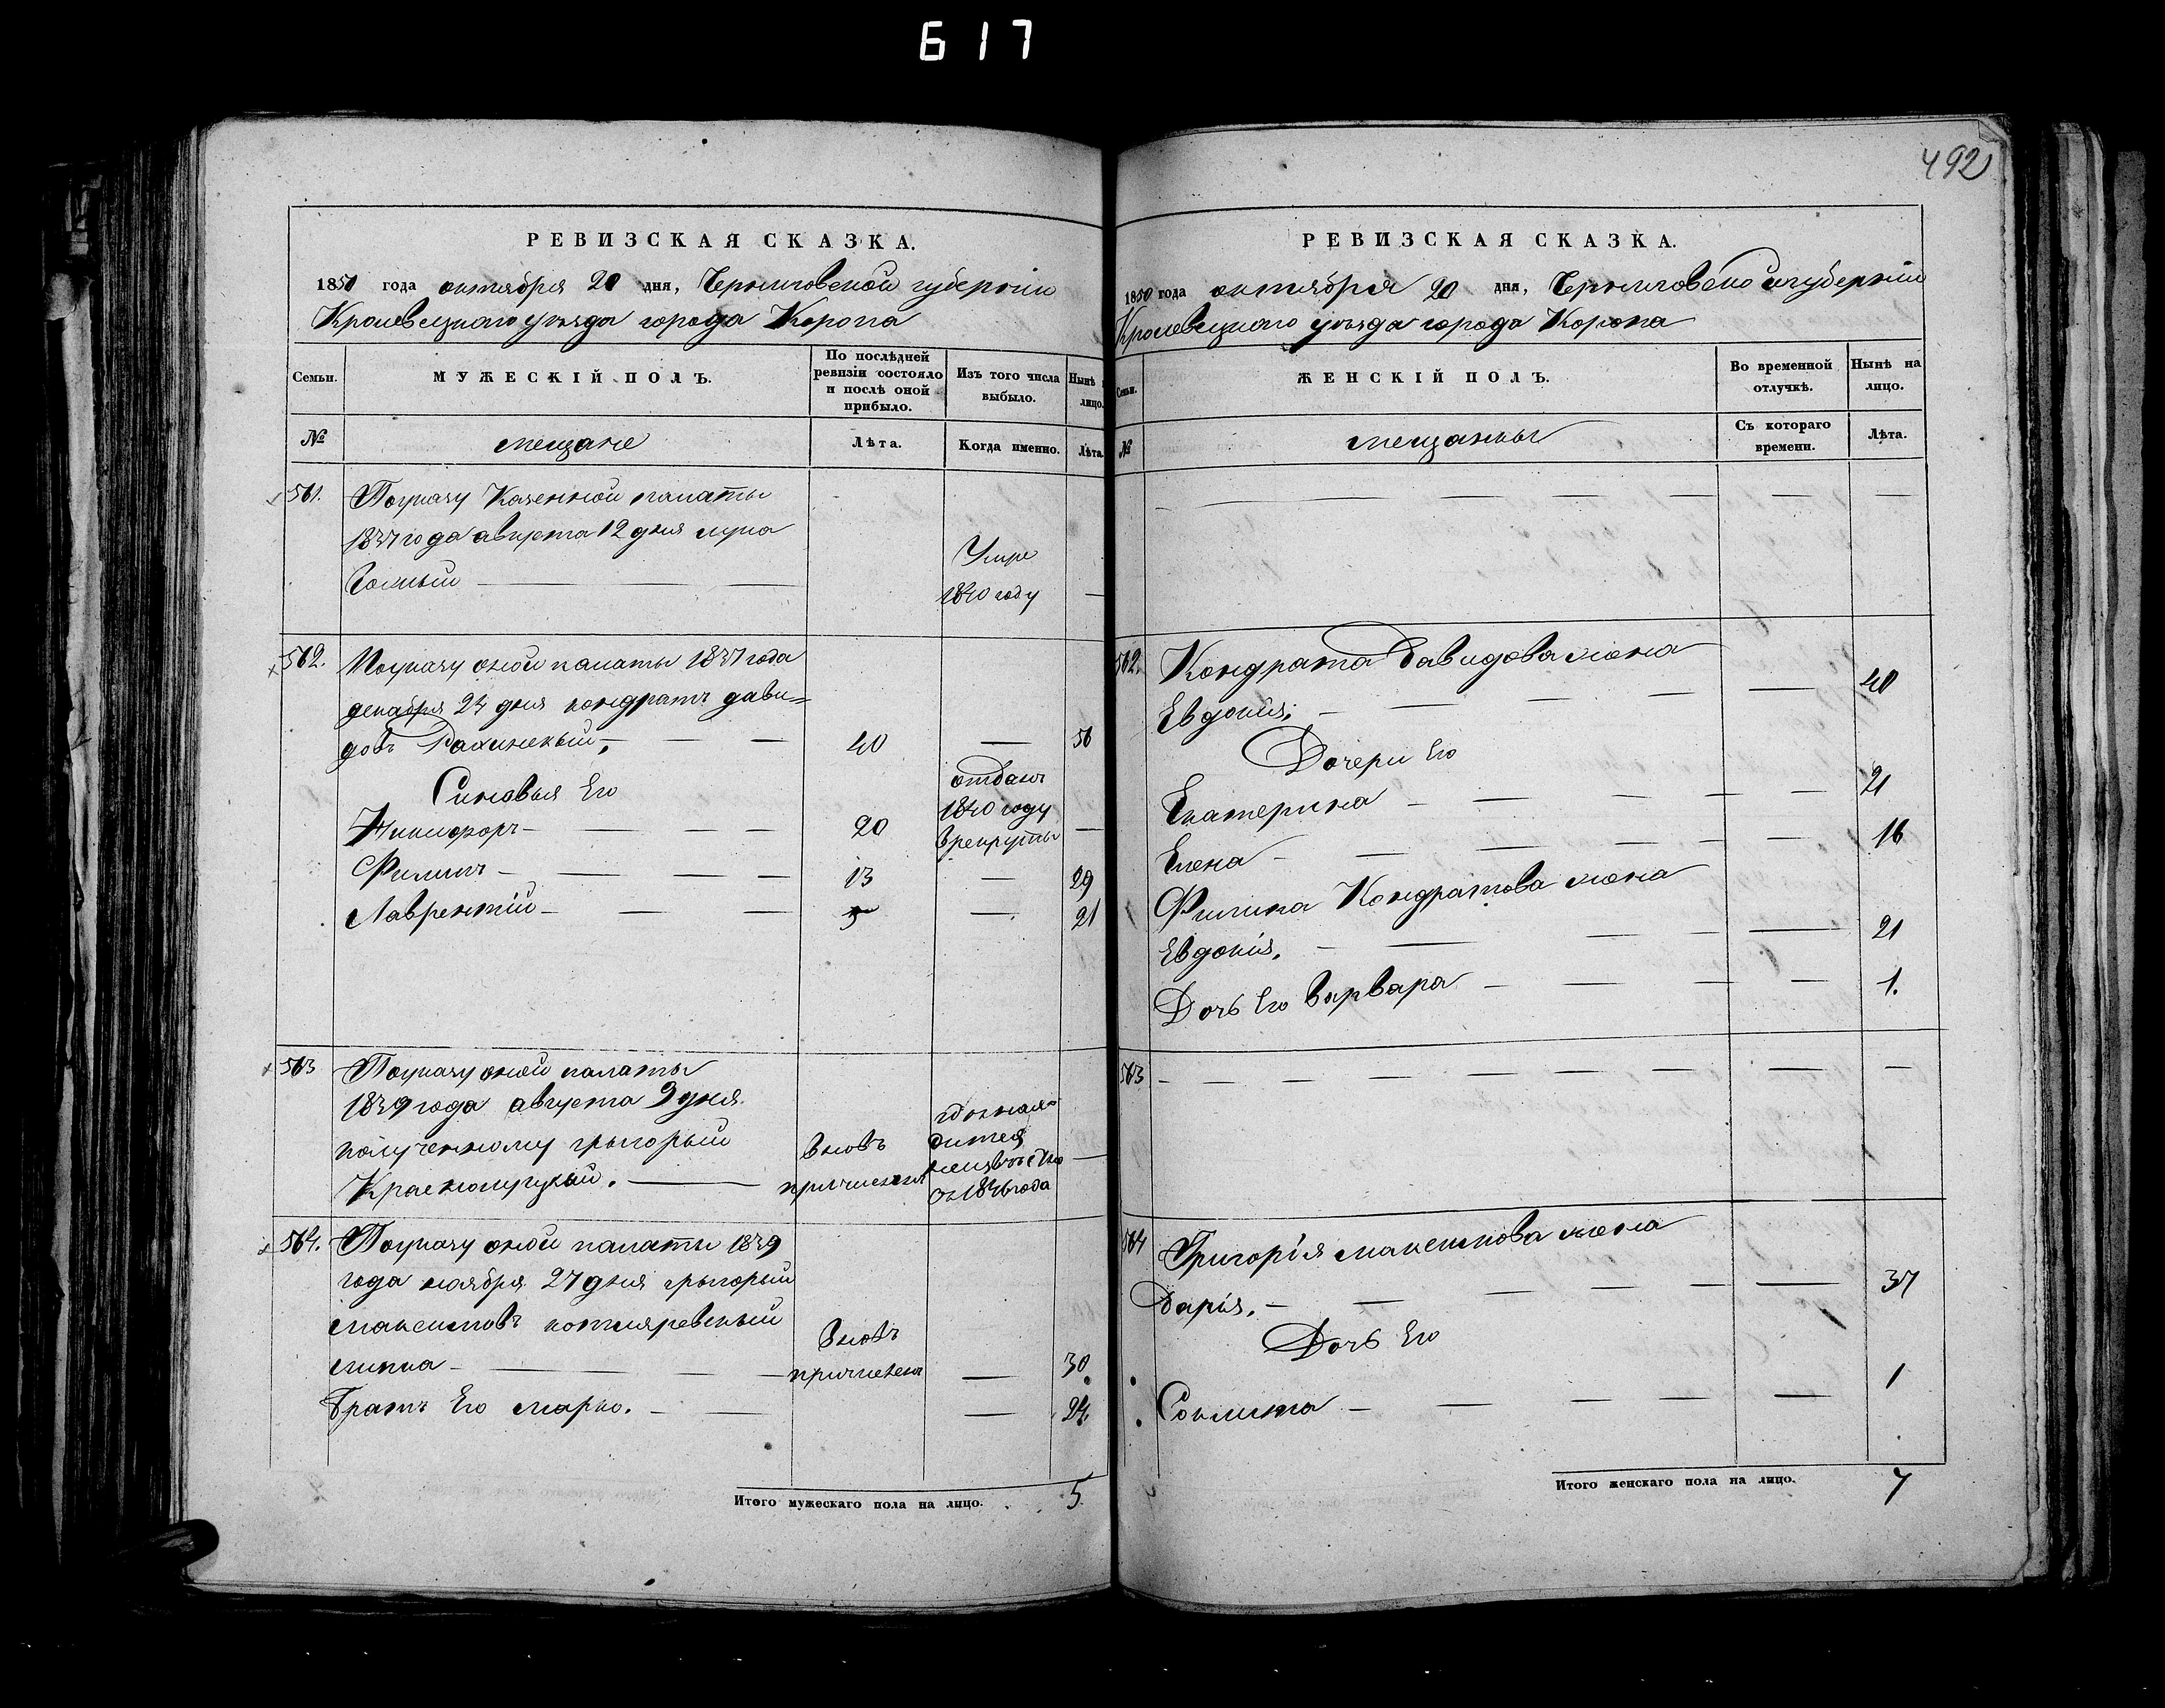 617
492
РЕВИЗСКАЯ СКАЗКА.
1850 года октября 20 дня, Черниговской губерніи
Кролевецкаго уѣзда города Коропа
Семьи.
МУЖЕСКІЙ ПОЛЪ.
По послѣдней ревизіи состояло и послѣ оной прибыло.
Изъ того числа выбыло.
Нынѣ лицо.
№
мещане
Лѣта.
Когда именно.
Лѣта.
561. Поуказу Казенной палаты
1837 года августа 12 дня лука
Умре
1840 году
562. Поуказу оной палаты 1837 года
декабря 24 дня кондратъ дави=
довъ 40 — 56
Синовья Его
Никифоръ — 20 отданъ 1840 году врекруты —
Филипъ — 13 — 29
Лаврентій — 5 — 21
563 Поуказу оной палаты
1839 года августа 9 дня
полученному грыгорый
вновь причисленъ
неизвѣстно
1846 года
564. Поуказу оной палаты 1839
года ноября 27 дня грыгорый
максимовъ котляревскый
вновь
причисленъ — 30
Братъ Его марко. — 24.
Итого мужескаго пола на лицо. 5
РЕВИЗСКАЯ СКАЗКА.
1850 года октября 20 дня, Черниговской губерніи
Кролевецкаго уѣзда города Коропа
Семьи.
ЖЕНСКІЙ ПОЛЪ.
Во временной отлучкѣ.
Нынѣ на лицо.
№
мещанкы
Съ котораго времени.
Лѣта.
562. Кондрата Давидова жона
Евдокія. — 40
Дочери Его
Екатерина — 21
Елена — 16
Филипа Кондратова жона
Евдокія. — 21
Дочь Его Варвара — 1.
563 —
564 Григорія максимова жона
Дарія. — 37
Дочь Его
1
Итого женскаго пола на лицо. 7